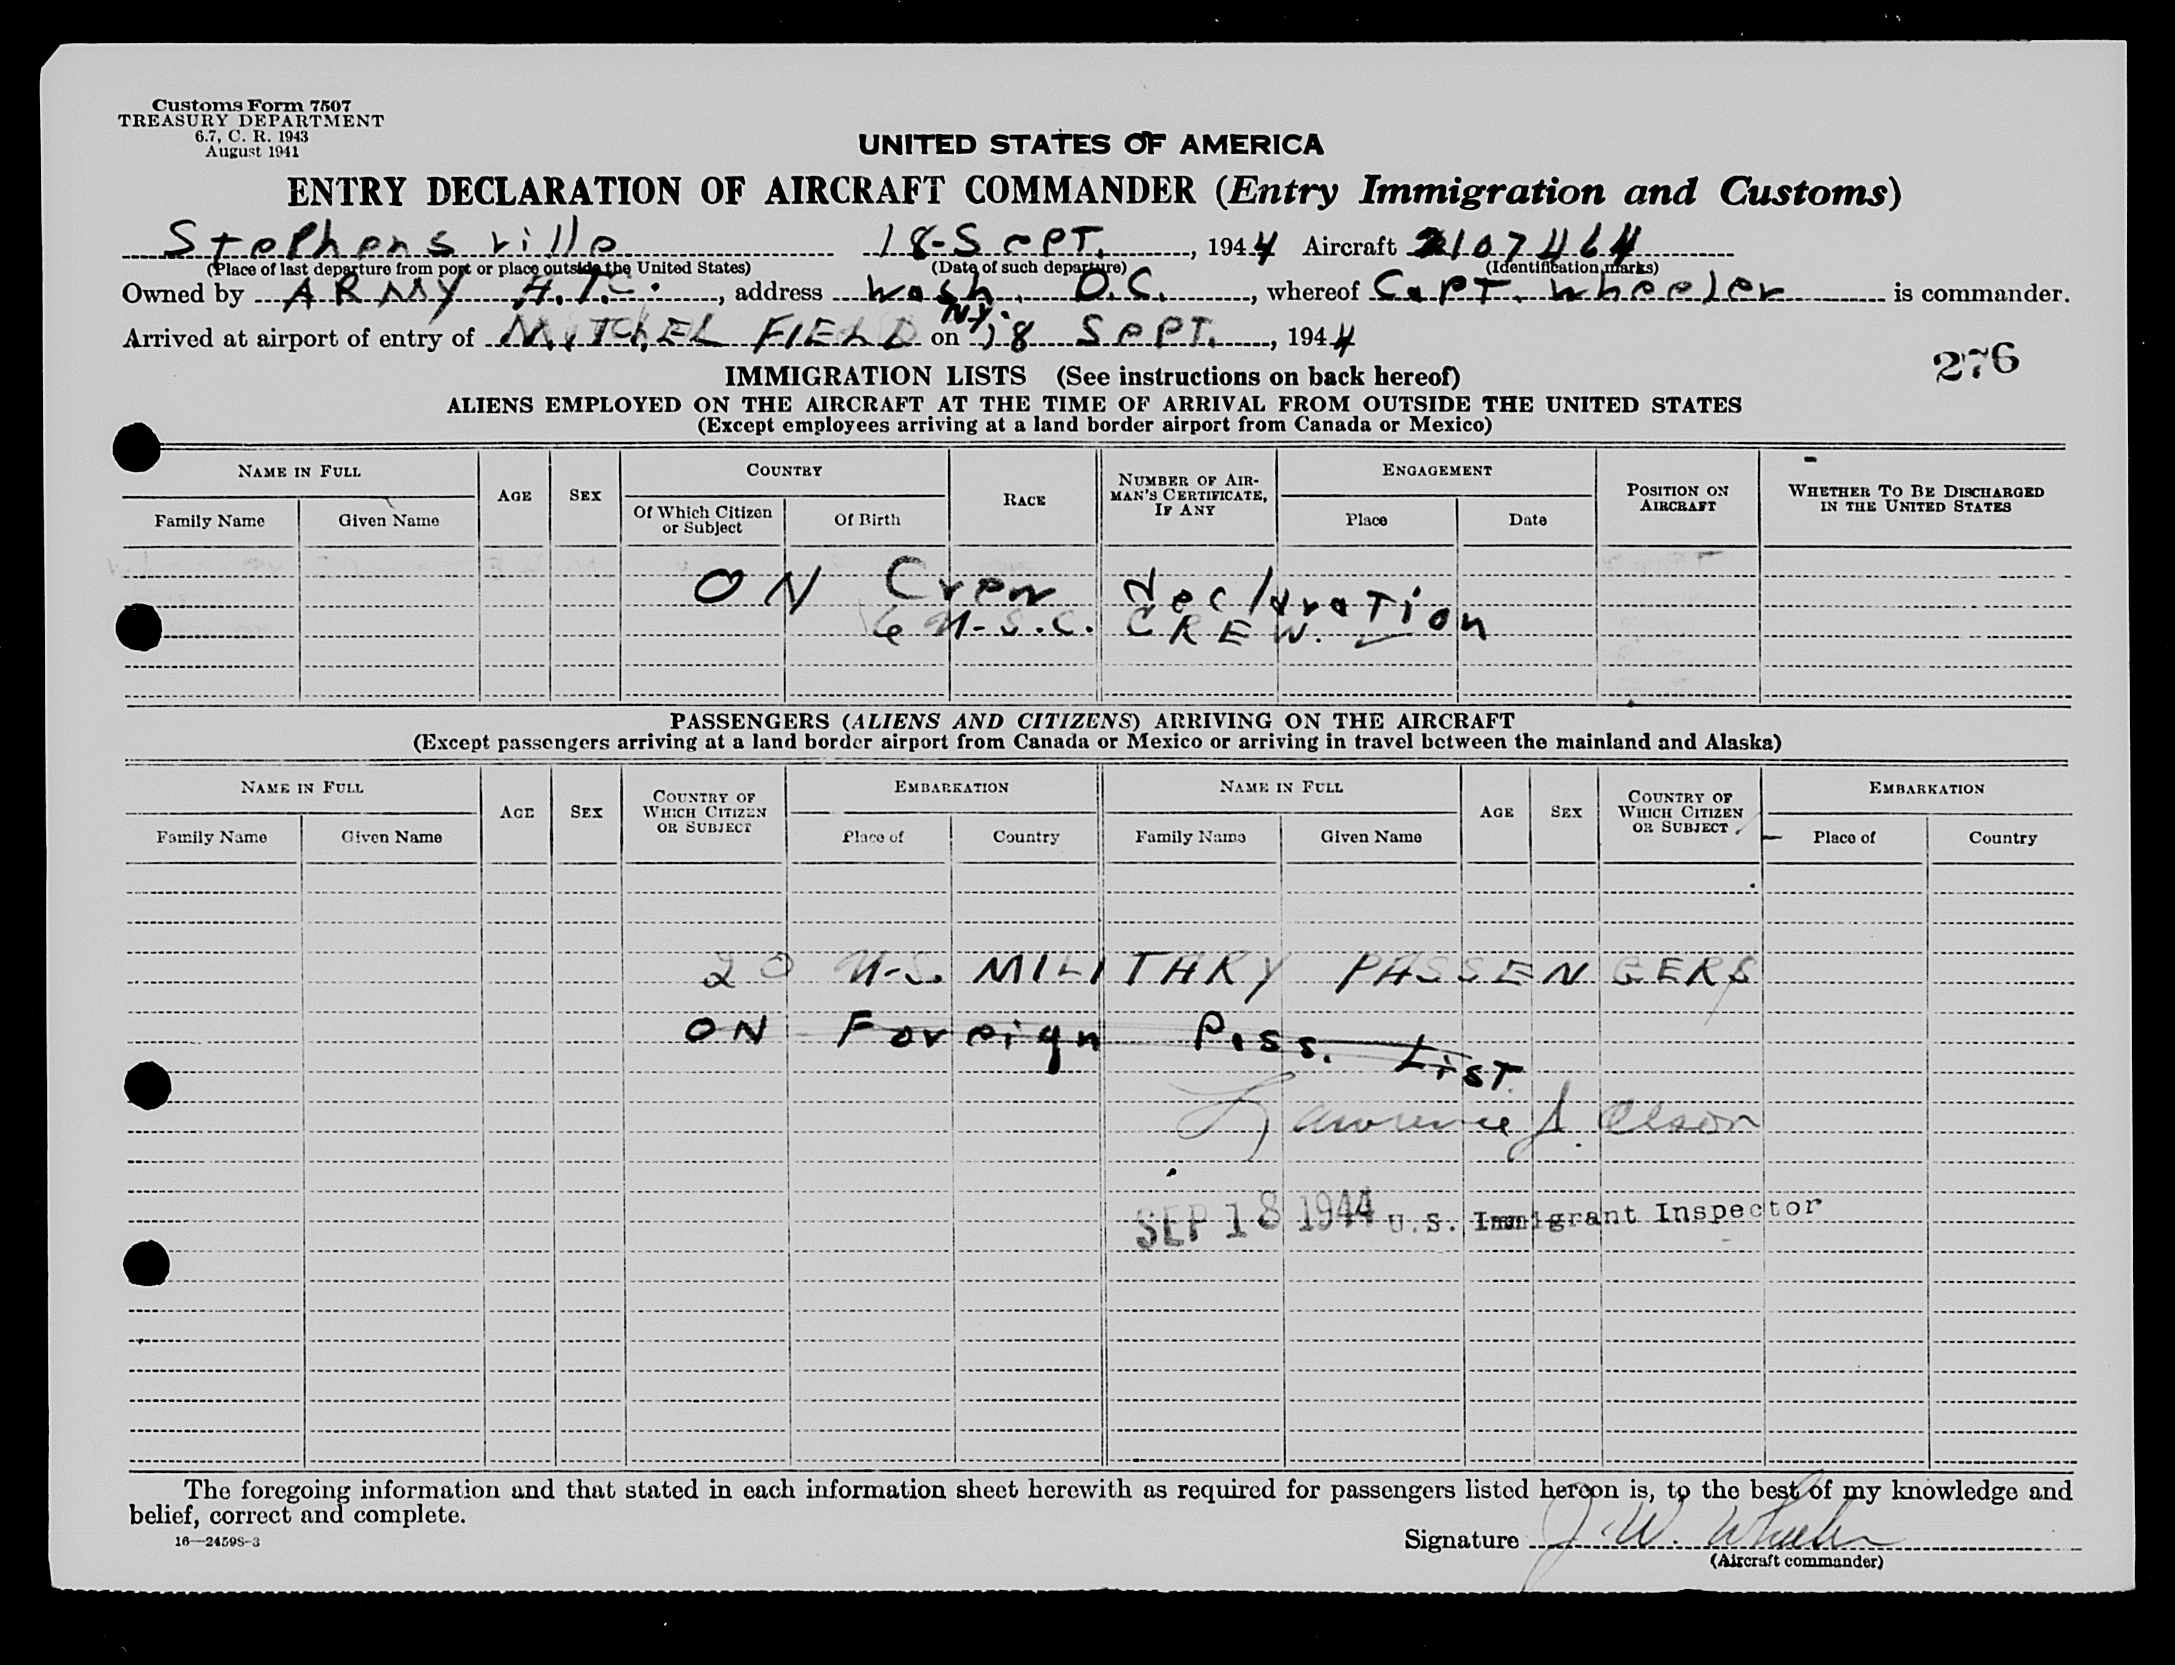 Customs Form 7507
TREASURY DEPARTMENT
6.7, C. R. 1943
August 1941
UNITED STATES OF AMERICA
ENTRY DECLARATION OF AIRCRAFT COMMANDER (Entry Immigration and Customs)
Stephensville 18-Sept., 1944 Aircraft 2107464
(Place of last departure from port or place outside the United States) (Date of such departure) (Identification marks)
Owned by ARMY A.T.C., address Wash. D.C., whereof Capt. Wheeler is commander.
Arrived at airport of entry of MITCHEL FIELD N.Y. on 18 Sept., 1944
276
IMMIGRATION LISTS (See instructions on back hereof)
ALIENS EMPLOYED ON THE AIRCRAFT AT THE TIME OF ARRIVAL FROM OUTSIDE THE UNITED STATES
(Except employees arriving at a land border airport from Canada or Mexico)
NAME IN FULL AGE SEX COUNTRY RACE NUMBER OF AIRMAN'S CERTIFICATE, IF ANY ENGAGEMENT POSITION ON AIRCRAFT WHETHER TO BE DISCHARGED IN THE UNITED STATES
Family Name Given Name Of Which Citizen or Subject Of Birth Place Date
ON Crew declaration
6 U.S.C. CREW.
PASSENGERS (ALIENS AND CITIZENS) ARRIVING ON THE AIRCRAFT
(Except passengers arriving at a land border airport from Canada or Mexico or arriving in travel between the mainland and Alaska)
NAME IN FULL AGE SEX COUNTRY OF WHICH CITIZEN OR SUBJECT EMBARKATION NAME IN FULL AGE SEX COUNTRY OF WHICH CITIZEN OR SUBJECT EMBARKATION
Family Name Given Name Place of Country Family Name Given Name Place of Country
20 U.S. MILITARY PASSENGERS
ON Foreign Pass. List.
Lawrence J. Olson
SEP 18 1944 U.S. Immigrant Inspector
The foregoing information and that stated in each information sheet herewith as required for passengers listed hereon is, to the best of my knowledge and
belief, correct and complete.
16—24598-3
Signature J. W. Wheeler
(Aircraft commander)